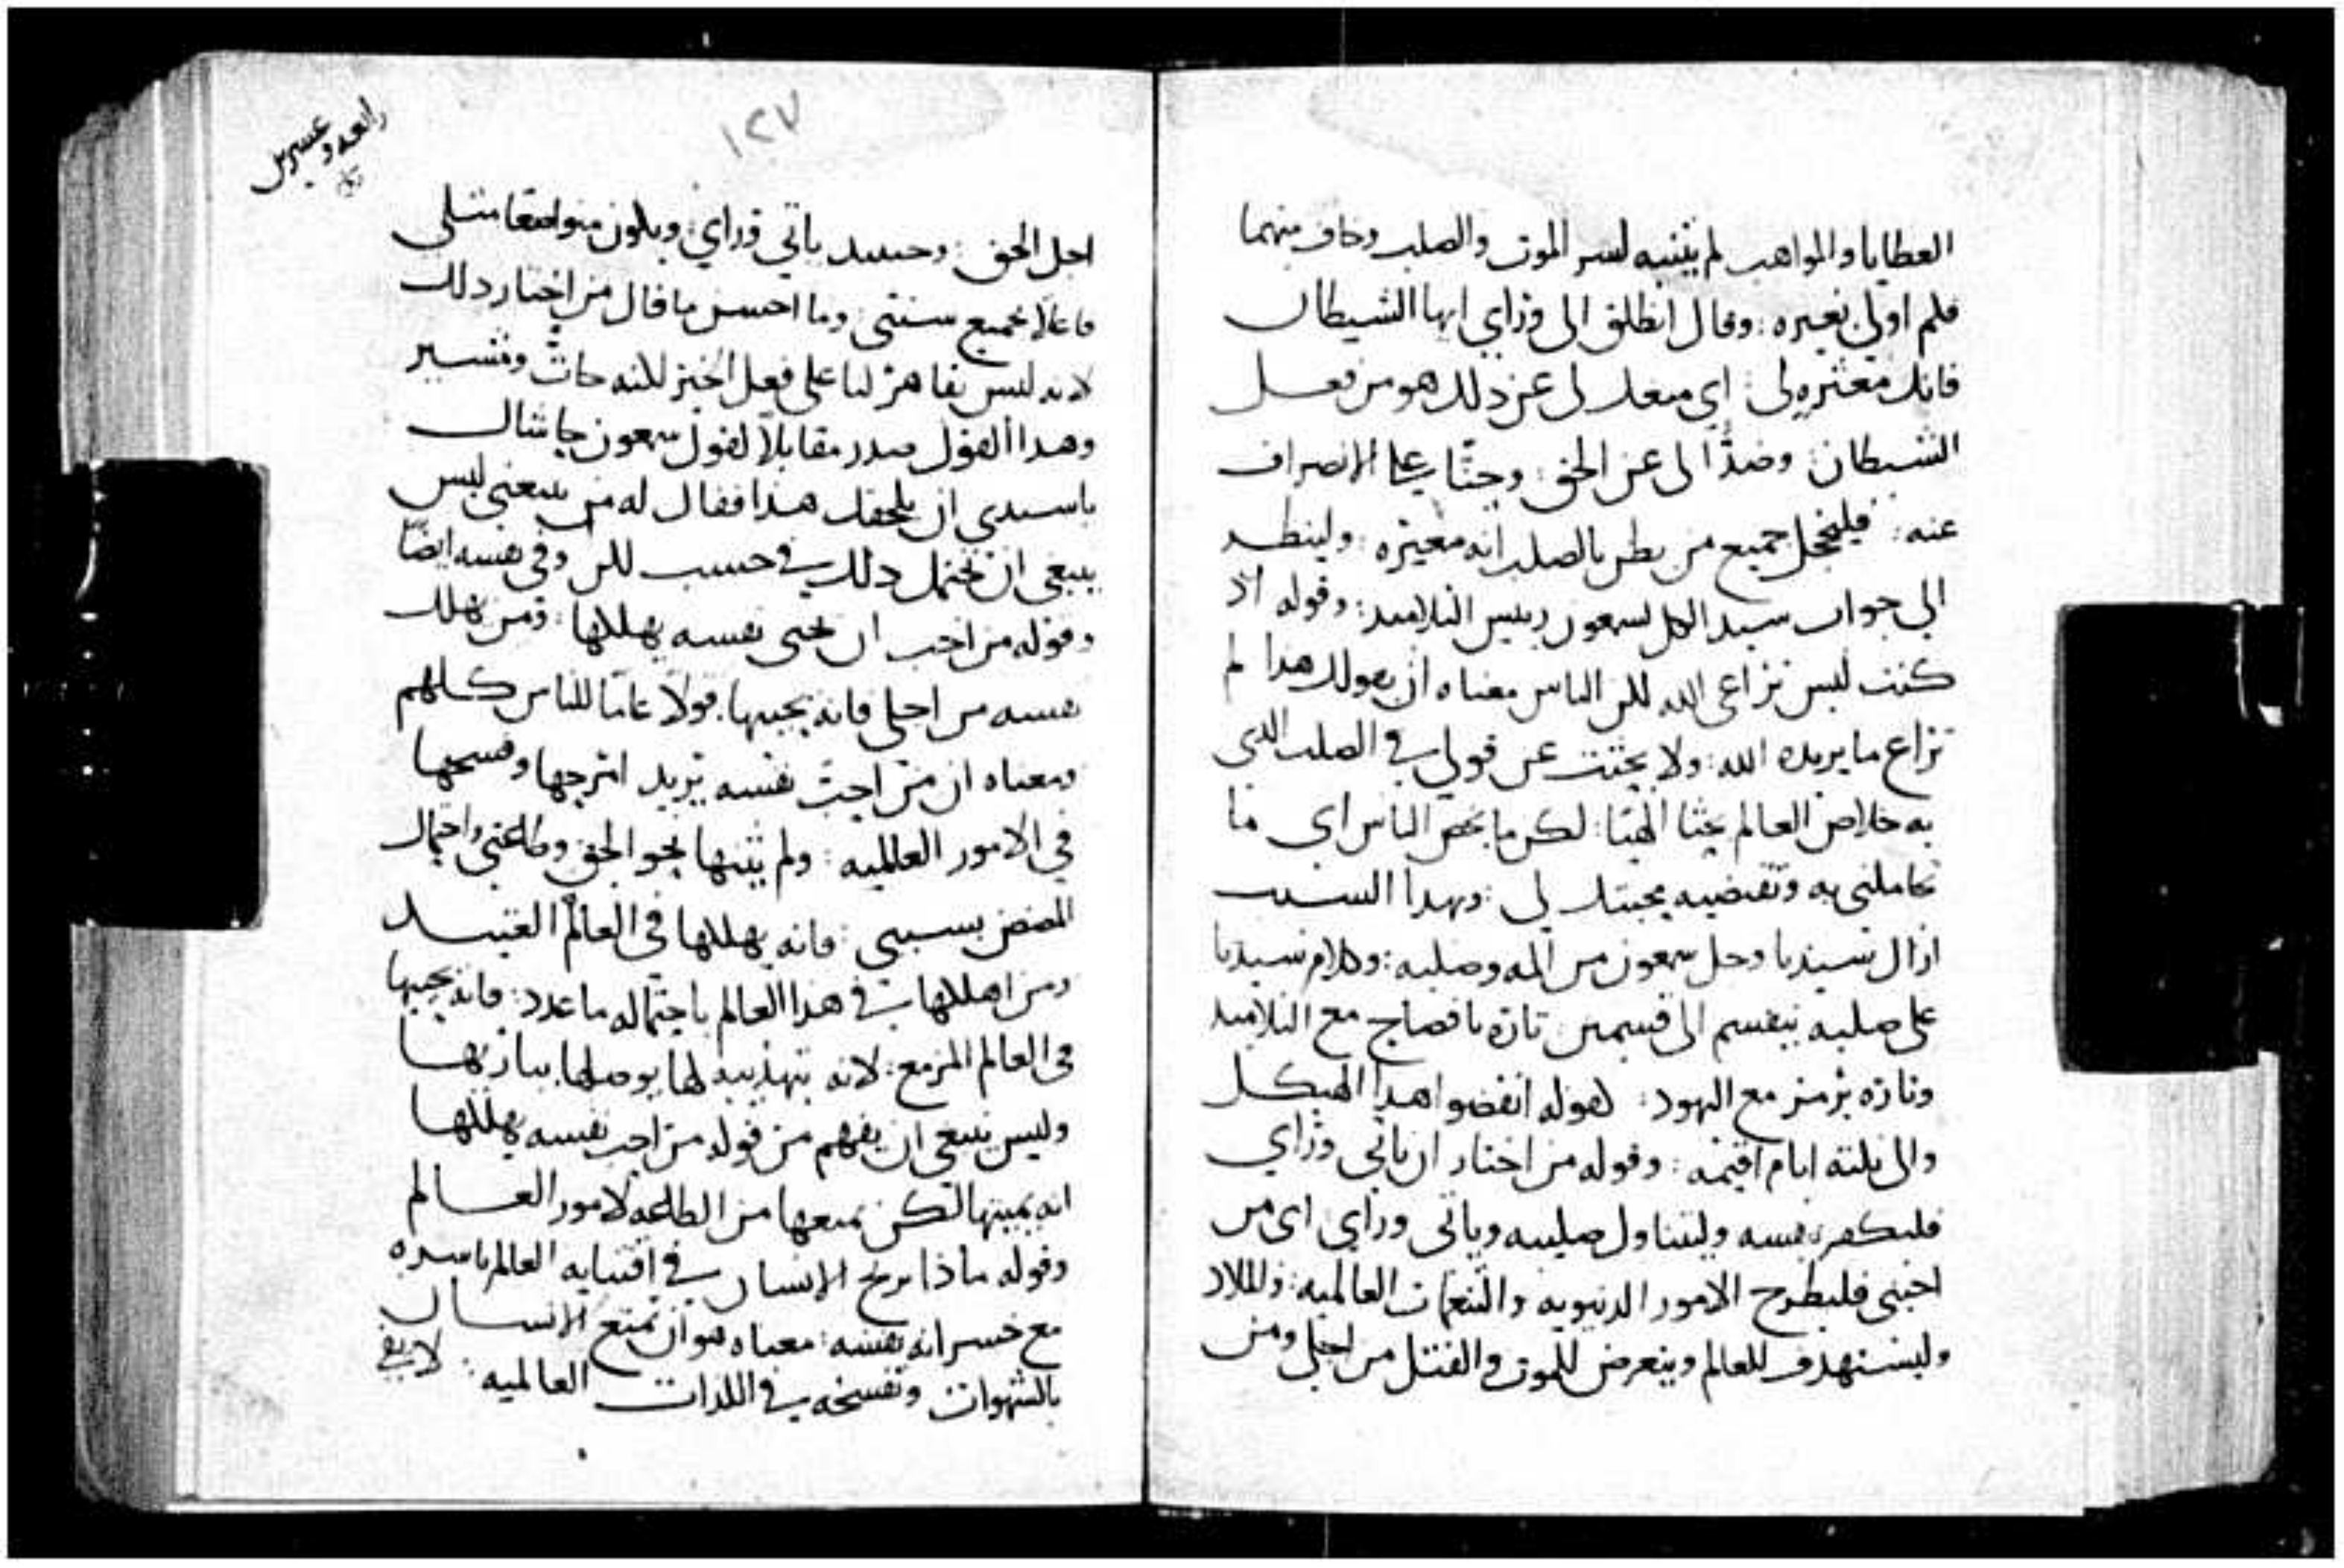 العطايا والمواهب لم يثنيه لسر الموت والصلب وخاف منهما
فلم اولى بعيره: وقال انطلق الى ورأى ايها الشيطان
فانك معثره لى: اي مبعد لى عن ذلك هو من فعل
الشيطان: وضدًّا لى عن الحق: وحثّا على الانصراف
عنه: فليخجل جميع من يظن بالصلب انه معيره: ولينظر
الى جواب سيد الكل لسمعون رييس التلاميد: وقوله اذ
كنت ليس تراعى الله لكن الناس معناه ان بقولك هدا لم
تراع ما يريده الله: ولا بحثت عن قولي في الصلب الدى
به خلاص العالم بحثا الهيا: لكن ما يخص الناس اي ما
تعاملنى به وتقتضيه محبتك لى: وبهدا السبب
ازال سيدنا وحل سمعون من المه وصلبه: وكلام سيدنا
على صلبه ينقسم الى قسمين تاره بافصاح مع التلاميد
وتاره برمز مع اليهود: كقوله انقضوا هدا الهيكل
والى ثلثة ايام اقيمه: وقوله من اختار ان ياتى ورأي
فليكفر بنفسه وليتناول صليبه وياتى وراي اى من
احبنى فليطرح الامور الدنيويه والنعمات العالميه: والملاد
وليستهدف للعالم ويتعرض للموت والقتل من اجلى ومن
رابعه وعسرين
١٢٧
اجل الحق: وحينيد ياتي ورأي: ويكون متواضعا مثلى
فاعلا بجميع سنتى: وما احسن ما قال من اختار دلك
لانه ليس بقاهر لنا على فعل الخير لكنه حاثّ ومشير
وهدا القول صدر مقابلاً لقول سمعون حاشاك
ياسيدى ان يلحقك هدا فقال له من يتبعنى ليس
ينبغى ان يحتمل دلك في حسب لكن وفي نفسه ايضًا
وقوله من احب ان يحيى نفسه يهلكها: ومن يهلك
نفسه من اجلى فانه يحييها. قولا عامّا للناس كلهم
ومعناه ان من احبّ نفسه يريد امرجها وفسحها
في الامور العالميه: ولم يثنها نحو الحق وطاعتى واحتمال
المضض بسببى: فانه يهلكها فى العالم العتيد
ومن اهلكها في هدا العالم باحتماله ما عدد: فانه يحييها
فى العالم المزمع: لانه بتهديبه لها يوصلها بباريها
وليس ينبغى ان يفهم من قوله من احب نفسه يهلكها
انه يميتها لكن يمنعها من الطاعه لامور العالم
وقوله ماذا يربح الانسان في اقتنايه العالم باسره
مع خسرانه نفسه: معناه هو ان تمتع الانسان
بالشهوات وتفسخه في اللدات العالميه: لا يفى